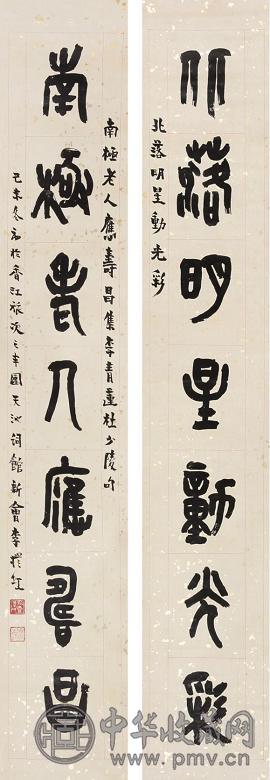 北落明星動光彩
北落明星動光彩
南極老人應壽昌
南極老人應壽昌集李青蓮杜少陵句
己未冬 於香江旅次之半園天 詞館新會李
中华收藏网
www.pmv.cn